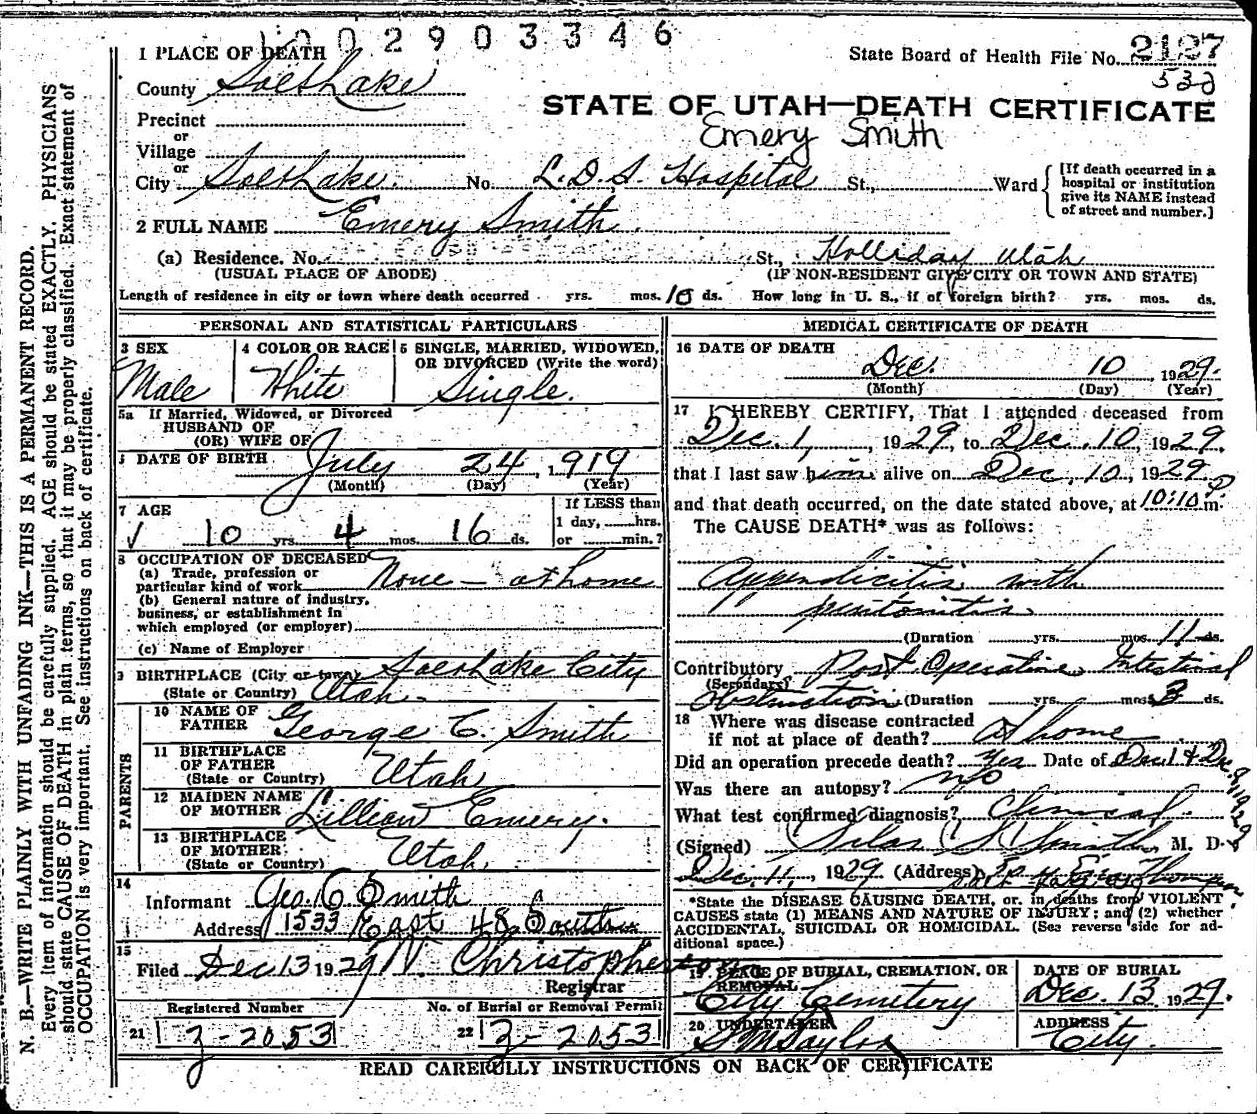 0 0 2 9 0 3 3 4 6
1 PLACE OF DEATH
State Board of Health File No. 2127
532
County Salt Lake
STATE OF UTAH—DEATH CERTIFICATE
Emery Smith
Precinct
or
Village
or
City Salt Lake. No. L.D.S. Hospital St., Ward
[If death occurred in a
hospital or institution
give its NAME instead
of street and number.]
2 FULL NAME Emery Smith.
(a) Residence. No. St., Holliday Utah
(USUAL PLACE OF ABODE) (IF NON-RESIDENT GIVE CITY OR TOWN AND STATE)
Length of residence in city or town where death occurred yrs. mos. 10 ds. How long in U. S., if of foreign birth? yrs. mos. ds.
PERSONAL AND STATISTICAL PARTICULARS
3 SEX Male
4 COLOR OR RACE White
5 SINGLE, MARRIED, WIDOWED,
OR DIVORCED (Write the word)
Single.
5a If Married, Widowed, or Divorced
HUSBAND OF
(OR) WIFE OF
DATE OF BIRTH July 24, 1919
(Month) (Day) (Year)
7 AGE
10 yrs. 4 mos. 16 ds.
If LESS than
1 day, hrs.
or min.?
8 OCCUPATION OF DECEASED
(a) Trade, profession or
particular kind of work None - at home
(b) General nature of industry,
business, or establishment in
which employed (or employer)
(c) Name of Employer
9 BIRTHPLACE (City or town) Salt Lake City
(State or Country) Utah.
PARENTS
10 NAME OF
FATHER George C. Smith
11 BIRTHPLACE
OF FATHER
(State or Country) Utah
12 MAIDEN NAME
OF MOTHER Lillian Emery.
13 BIRTHPLACE
OF MOTHER
(State or Country) Utah
14
Informant Geo. C Smith
Address 1533 East 48 South
15
Filed Dec 13 1929 N. Christopherson
Registrar
Registered Number No. of Burial or Removal Permit
21 Z-2053 22 Z-2053
MEDICAL CERTIFICATE OF DEATH
16 DATE OF DEATH
Dec. 10 1929.
(Month) (Day) (Year)
17 I HEREBY CERTIFY, That I attended deceased from
Dec. 1, 1929 to Dec. 10, 1929
that I last saw him alive on Dec. 10, 1929
and that death occurred, on the date stated above, at 10:10 P m.
The CAUSE DEATH* was as follows:
Appendicitis with
peritonitis.
(Duration yrs. mos. 11 ds.
Contributory Post Operative Intestinal
(Secondary)
obstruction (Duration yrs. mos. 3 ds.
18 Where was disease contracted
if not at place of death? At home
Did an operation precede death? Yes Date of Dec 1 & Dec 8, 1929
Was there an autopsy? no
What test confirmed diagnosis? Clinical.
(Signed) Silas S. Smith, M. D.
Dec. 11, 1929 (Address)
*State the DISEASE CAUSING DEATH, or, in deaths from VIOLENT
CAUSES state (1) MEANS AND NATURE OF INJURY; and (2) whether
ACCIDENTAL, SUICIDAL OR HOMICIDAL. (See reverse side for ad-
ditional space.)
19 PLACE OF BURIAL, CREMATION, OR
REMOVAL
City Cemetery
DATE OF BURIAL
Dec. 13 1929.
20 UNDERTAKER
S M Taylor
ADDRESS
City.
READ CAREFULLY INSTRUCTIONS ON BACK OF CERTIFICATE
N. B.—WRITE PLAINLY WITH UNFADING INK—THIS IS A PERMANENT RECORD.
Every item of information should be carefully supplied. AGE should be stated EXACTLY. PHYSICIANS
should state CAUSE OF DEATH in plain terms, so that it may be properly classified. Exact statement of
OCCUPATION is very important. See instructions on back of certificate.